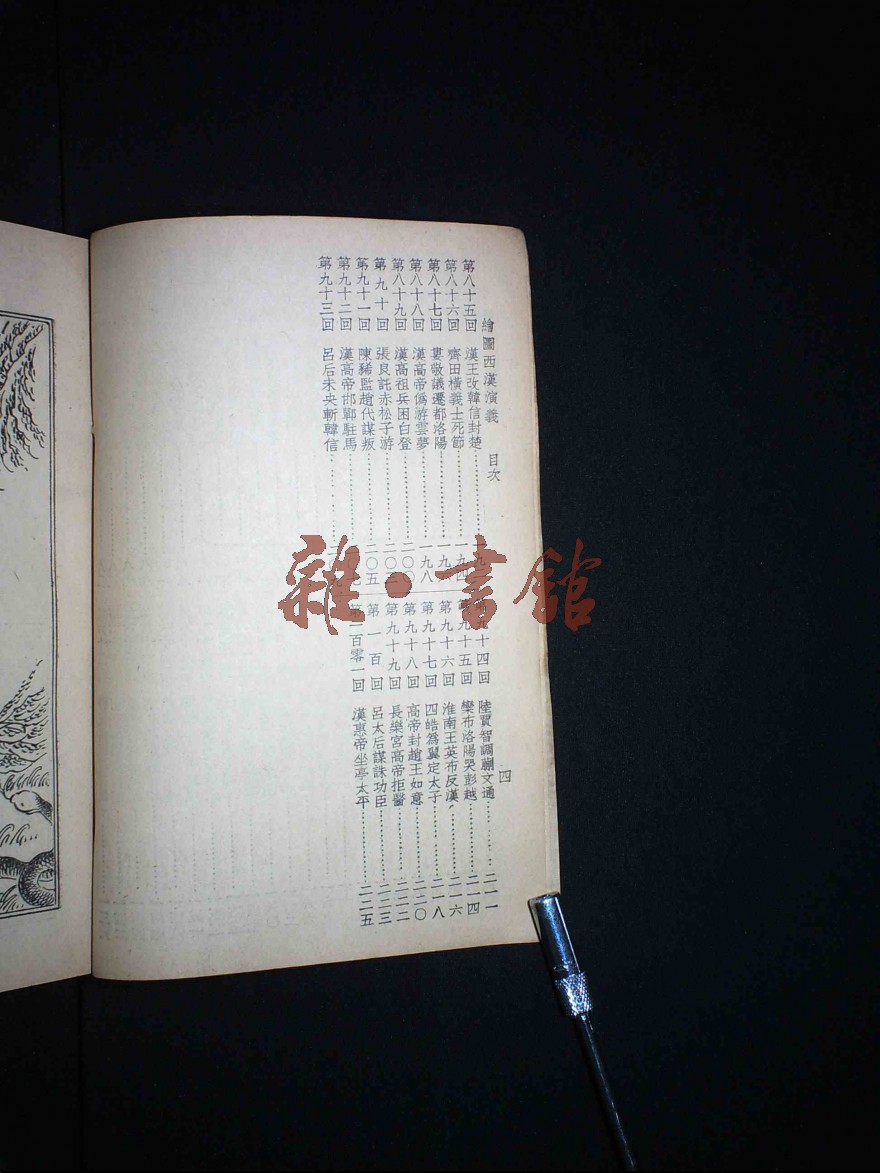 繪圖西漢演義 目次 四
第八十五回 漢王改韓信封楚
第八十六回 齊田橫義士死節 一九四
第八十七回 婁敬議遷都洛陽
第八十八回 漢高帝僞游雲夢 一九八
第八十九回 漢高祖兵困白登
第九十回 張良託赤松子游
第九十一回 陳豨監趙代謀叛 二〇五
第九十二回 漢高帝邯鄲駐馬
第九十三回 呂后未央斬韓信
第九十四回 陸賈智調蒯文通 二一一
第九十五回 欒布洛陽哭彭越 二一四
第九十六回 淮南王英布反漢 二一六
第九十七回 四皓爲翼定太子 二一八
第九十八回 高帝封趙王如意 二二〇
第九十九回 長樂宮高帝拒醫 二二二
第一百回 呂太后謀誅功臣 二二三
第一百零一回 漢惠帝坐享太平 二二五
雜·書館